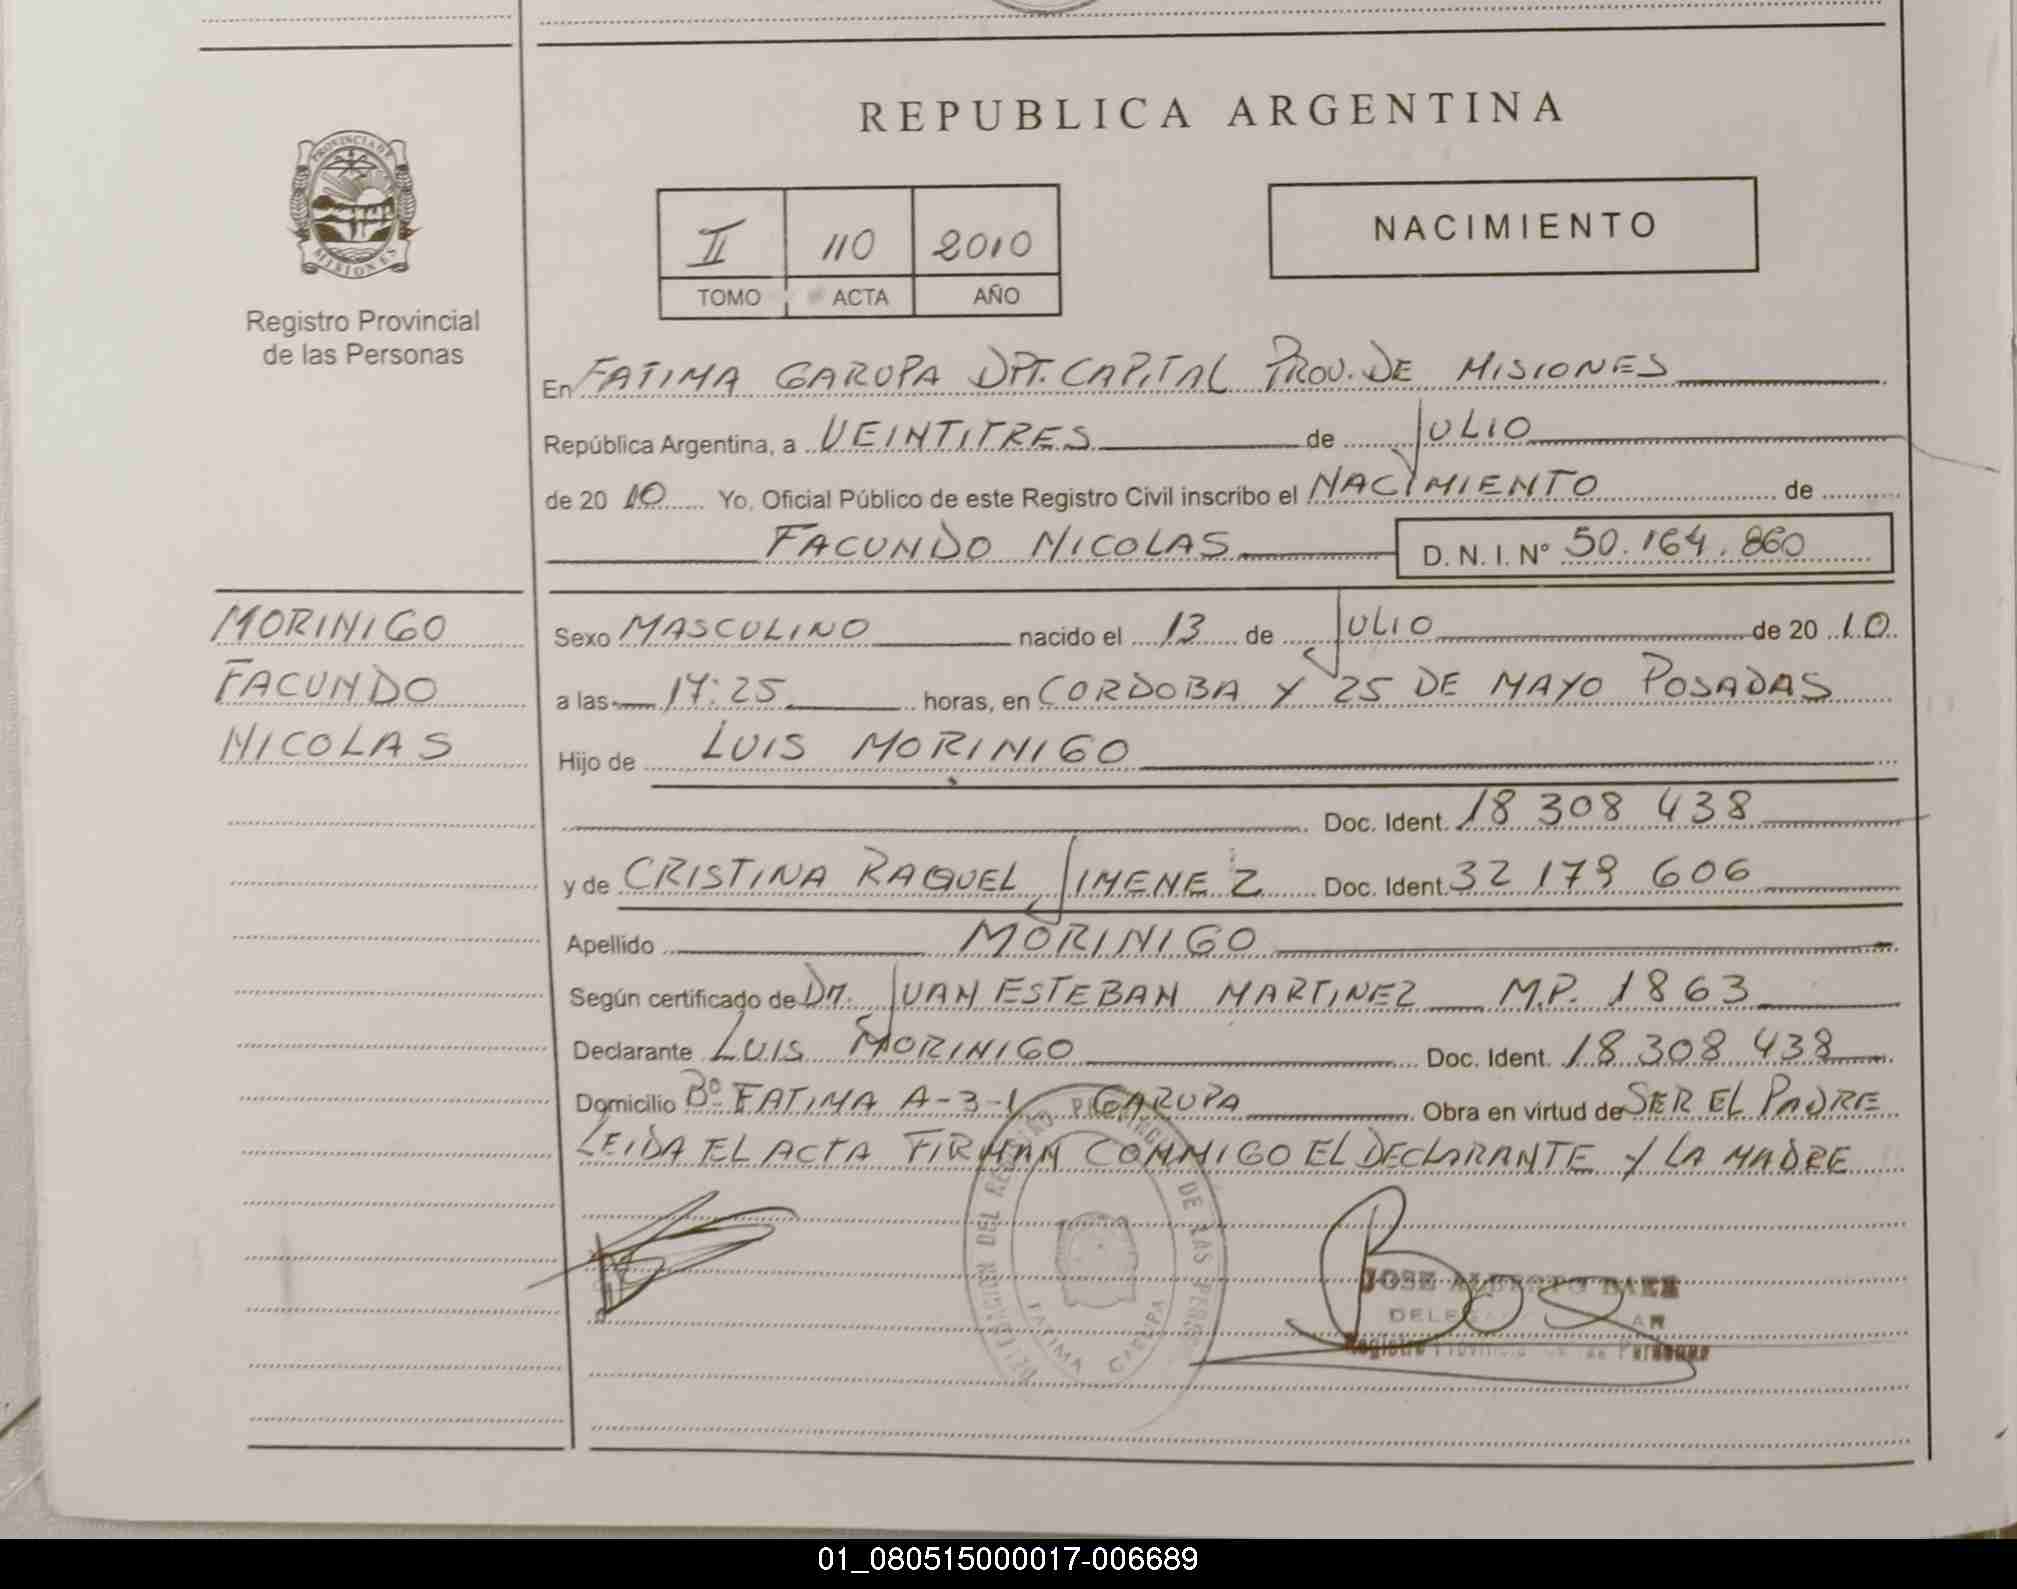 REPUBLICA ARGENTINA
PROVINCIA DE
MISIONES
Registro Provincial
de las Personas
II 110 2010
TOMO ACTA AÑO
NACIMIENTO
En FATIMA GARUPA DPT. CAPITAL PROV. DE MISIONES
República Argentina, a VEINTITRES de JULIO
de 20 10 Yo, Oficial Público de este Registro Civil inscribo el NACIMIENTO de
FACUNDO NICOLAS D. N. I. Nº 50.164.860
MORINIGO
FACUNDO
NICOLAS
Sexo MASCULINO nacido el 13 de JULIO de 20 10
a las 17:25 horas, en CORDOBA Y 25 DE MAYO POSADAS
Hijo de LUIS MORINIGO
Doc. Ident. 18 308 438
y de CRISTINA RAQUEL JIMENEZ Doc. Ident. 32 179 606
Apellido MORINIGO
Según certificado de Dr. JUAN ESTEBAN MARTINEZ M.P. 1863
Declarante LUIS MORINIGO Doc. Ident. 18 308 438
Domicilio Bº FATIMA A-3-1 GARUPA Obra en virtud de SER EL PADRE
LEIDA EL ACTA FIRMAN CONMIGO EL DECLARANTE Y LA MADRE
DELEGACION DEL REGISTRO PROVINCIAL DE LAS PERSONAS
FATIMA GARUPA
JOSE ALBERTO BAEZ
Registro Provincial de Personas
01_080515000017-006689